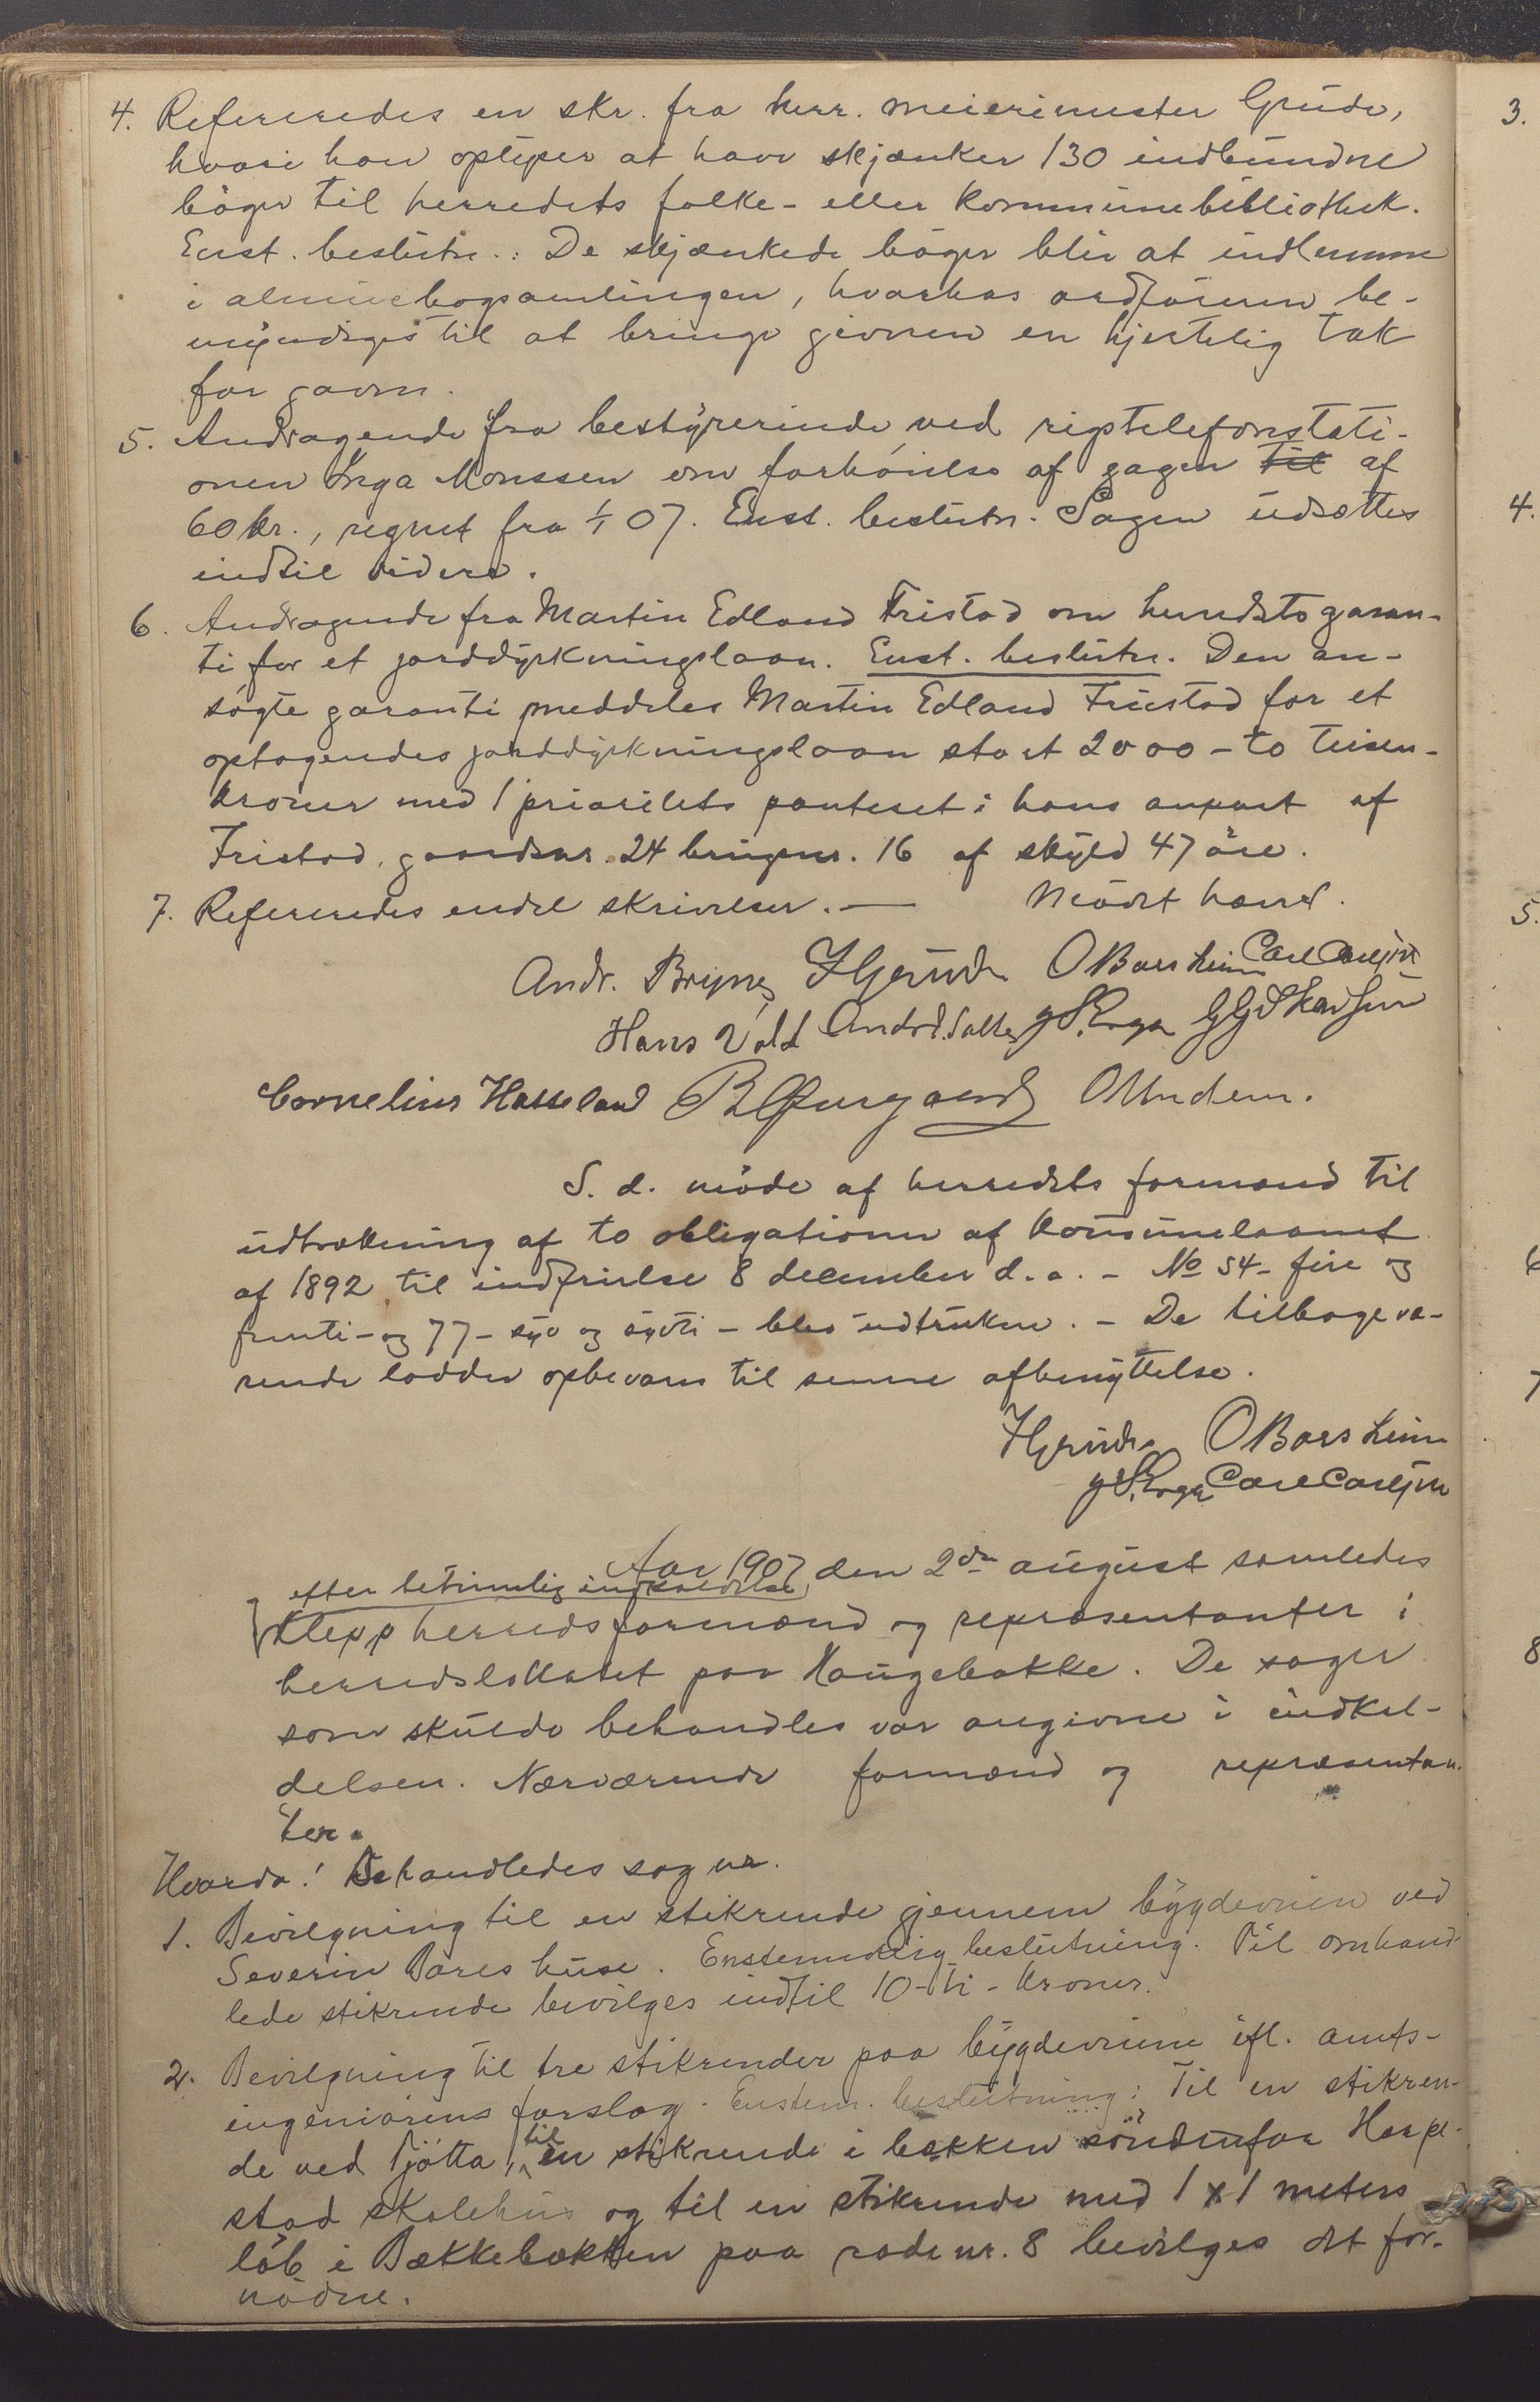 4. Refereredes en skr. fra herr. meierimester Grude,
hvori han oplyser at have skjænket 130 indbundne
bøger til herredets folke- eller kommunebibliothek.
Enst. beslutn.: De skjænkede bøger blir at indlemme
i almuebogsamlingen, hvorhos ordføreren be-
myndiges til at bringe giveren en hjertelig tak
for gaven.
5. Andragende fra bestyrerinde ved rigstelefonstati-
onen Inga Monssen om forhøielse af gagen til af
60 kr., regnet fra 1/1 07. Enst. beslutn. Sagen udsættes
indtil videre.
6. Andragende fra Martin Edland Fristad om herredets garan-
ti for et jorddyrkningslaan. Enst. beslutn. Den an-
søgte garanti meddeles Martin Edland Fristad for et
optagendes jorddyrkningslaan stort 2000 - to tusen -
kroner med 1 prioritets panteret i hans anpart af
Fristad, gaardsnr. 24 brugsnr. 16 af skyld 47 øre.
7. Refereredes endel skrivelser. — Mødet hævet.
Andr. Bryne HGrude O Borsheim Carl Carlsen
Hans Vold Andr. Salte J S. Erga G G Skadsem
Cornelius Hatteland R Øxnavad O Undem.
S. d. møde af herredets formænd til
udtrækning af to obligationer af kommunelaanet
af 1892 til indfrielse 8 december d. a. - No 54 - fire og
femti - og 77 - syv og sytti - blev udtrukne. - De tilbagevæ-
rende lodder opbevares til senere afbenyttelse.
HGrude O Borsheim
J S. Erga Carl Carlsen
Aar 1907 den 2den august samledes
efter betimelig indkaldelse
Klepp herredsformænd og repræsentanter i
herredslokalet paa Haugebakke. De sager
som skulde behandles var angivne i indkal-
delsen. Nærværende formænd og repræsentan-
ter.
Hvorda! Behandledes sag nr.
1. Bevilgning til en stikrende gjennem bygdeveien ved
Severin Bores huse. Enstemmig beslutning. Til omhand-
lede stikrende bevilges indtil 10 - ti - kroner.
2. Bevilgning til tre stikrender paa bygdeveiene ifl. amts-
ingeniørens forslag. Enstem. beslutning: Til en stikren-
de ved Tjøtta, til en stikrende i bækken søndenfor Horpe-
stad skolehus og til en stikrende med 1 x 1 meters
løb i Bækkebakken paa rode nr. 8 bevilges det for-
nødne.
3.
4.
5.
6
7
8